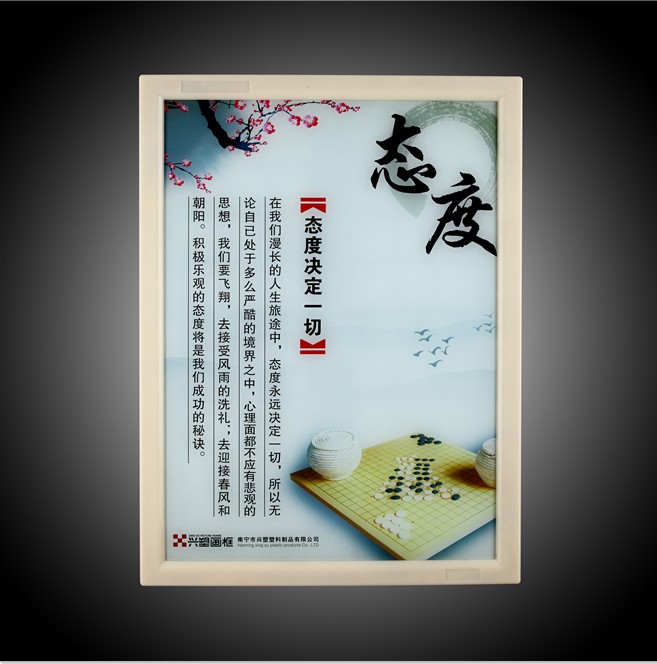 态度
态度决定一切
在我们漫长的人生旅途中，态度永远决定一切，所以无
论自己处于多么严酷的境界之中，心理面都不应有悲观的
思想，我们要飞翔，去接受风雨的洗礼；去迎接春风和
朝阳。积极乐观的态度将是我们成功的秘诀。
兴塑画框
南宁市兴塑塑料制品有限公司
Nanning xing su plastic products Co.,LTD